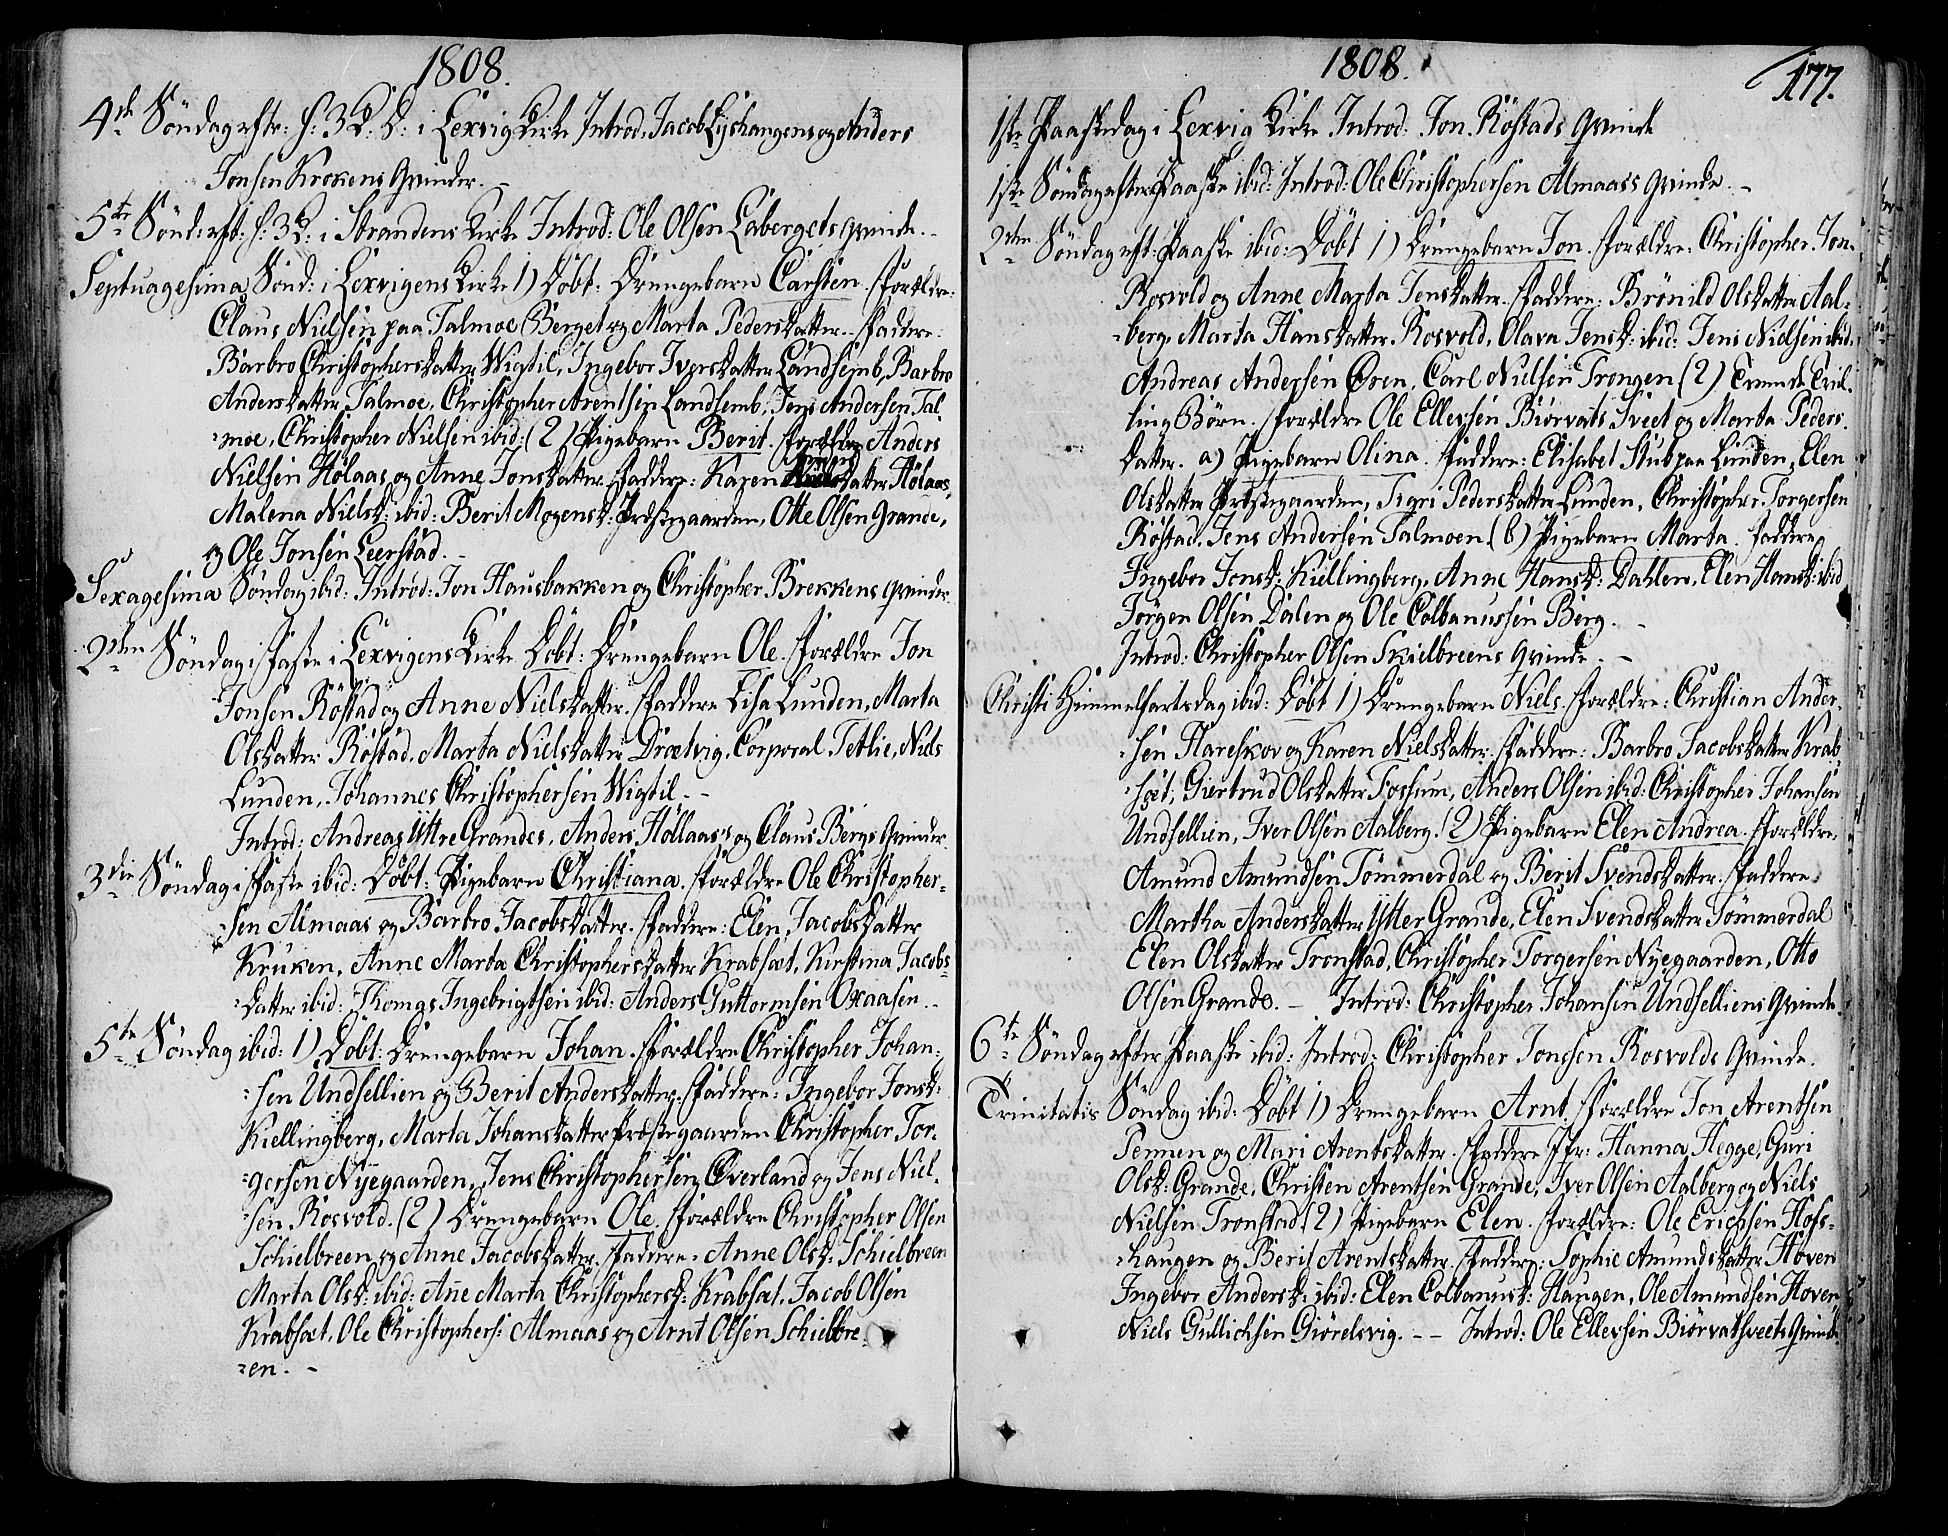 1808.
4de Søndag efter: H: 3 K: D: i Lexvig Kirke Introd: Jacob Lyshaugens og Anders
Jonsen Krokens Qvinder. -
5te Sønd: eft: H: 3 K: i Strandens Kirke Introd: Ole Olsen Labergets Qvinde. -
Septuagesima Sønd: i Lexvigens Kirke 1) Døbt: Drengebarn Carsten. Forældre:
Claus Nielsen paa Talmoe Berget og Marta Pedersdatter. - Faddere:
Barbro Christophersdatter Wigtil, Ingebor Iversdatter Landsemb, Barbro
Andersdatter Talmoe, Christopher Arentsen Landsemb, Jens Andersen Tal-
-moe, Christopher Nielsen ibid: (2) Pigebarn Berit. Forældre Anders
Nielsen Hølaas og Anne Jonsdatter. Faddere: Karen datter Hølaas,
Malena Nielsd: ibid: Berit Mogensd: Præstegaarden, Otte Olsen Grande,
og Ole Jonsen Leerstad. -
Sexagesima Søndag ibid: Introd: Jon Hausbakken og Christopher Brekkens Qvinder.
2den Søndag i Faste i Lexvigens Kirke Døbt: Drengebarn Ole. Forældre Jon
Jonsen Røstad og Anne Nielsdatter. Faddere Lisa Lunden, Marta
Olsdatter Røstad, Marta Nielsdatter Dræetvig, Corporal Tetlie, Niels
Lunden, Johannes Christophersen Wigtil. - -
Introd: Andreas Yttre Grandes, Anders Høllaas's og Claus Bergs Qvinder.
3die Søndag i Faste ibid: Døbt: Pigebarn Christiana. Forældre Ole Christopher-
-sen Almaas og Barbro Jacobsdatter. Faddere: Elen Jacobsdatter
Kruken, Anne Marta Christophersdatter Krabsæt, Kirstina Jacobs-
-datter ibid: Thomas Ingebrigtsen ibid: Anders Guttormsen Oxaasen. -
5te Søndag ibid: 1) Døbt: Drengebarn Johan. Forældre Christopher Johan-
-sen Undsellien og Berit Andersdatter. Faddere: Ingebor Jonsd:
Kiellingberg, Marta Johansdatter Præstegaarden Christopher Tor-
-gersen Nyegaarden, Jens Christophersen Overland og Jens Niel-
-sen Rosvold. (2) Drengebarn Ole. Forældre Christopher Olsen
Schielbreen og Anne Jacobsdatter. Faddere: Anne Olsd: Schielbreen
Marta Olsd: ibid: Anne Marta Christophersd: Krabsæt, Jacob Olsen
Krabsæt, Ole Christophers: Almaas og Arnt Olsen Schielbre-
-en. -
1808.
177.
1ste Paaskedag i Lexvig Kirke Introd: Jon Røstads Qvinde
1ste Søndag efter Paaske ibid: Introd: Ole Christophersen Almaass Qvinde. -
2den Søndag eft: Paaske ibid: Døbt 1) Drengebarn Jon. Forældre: Christopher Jon-
Rosvold og Anne Marta Jensdatter. Faddere: Brønild Olsdatter Aal-
-berg, Marta Hansdatter Rosvold, Olava Jensd: ibid: Jens Nielsen ibid.
Andreas Andersen Oren, Carl Nielsen Trongen (2) Tvende Tvil-
ling Børn. Forældre Ole Ellevsen Biørvats Sveet og Marta Peders-
datter. a) Pigebarn Olina. Faddere: Elisabet Stub paa Lunden, Elen
Olsdatter Præstegaarden, Sigri Pedersdatter Lunden, Christopher Torgersen
Røstad, Jens Andersen Talmoen. (b) Pigebarn Marta. Faddere
Ingebor Jonsd: Kiellingberg, Anne Hansd: Dahlen, Elen Hansd: ibid
Jørgen Olsen Dalen og Ole Colbanussen Berg. -
Introd: Christopher Olsen Skielbreens Qvinde. -
Christi Himmelfartsdag ibid: Døbt 1) Drengebarn Niels. Forældre: Christian Ander-
-sen Hareskov og Karen Nielsdatter. Faddere: Barbro Jacobsdatter Krab-
-sæt, Giertrud Olsdatter Fossum, Anders Olsen ibid: Christopher Johansen
Undsellien, Iver Olsen Aalberg. (2) Pigebarn Elen Andrea. Forældre
Amund Amundsen Tømmerdal og Berit Svendsdatter. Faddere
Martha Andersdatter Ytter Grande, Elen Svendsdatter Tømmerdal
Elen Olsdatter Tronstad, Christopher Torgersen Nyegaarden, Otto
Olsen Grande. - Introd: Christopher Johansen Undselliens Qvinde.
6te Søndag efter Paaske ibid: Introd: Christopher Jonsen Rosvolds Qvinde.
Trinitatis Søndag ibid: Døbt 1) Drengebarn Arnt. Forældre Jon Arentsen
Tennen og Mari Arentsdatter. Faddere Jfr: Hanna Hegge, Guri
Olsd: Grande, Christen Arentsen Grande, Iver Olsen Aalberg og Niels
Nielsen Tronstad. (2) Pigebarn Elen. Forældre: Ole Erichsen Hofs-
-haugen og Berit Arentsdatter. Faddere: Sophie Amundsdatter Hoven
Ingebor Andersd: ibid: Elen Colbanusd: Haugen, Ole Amundsen Hoven
Niels Gullichsen Giørelsvig. - - Introd: Ole Ellevsen Biørvatsveets Qvinde.